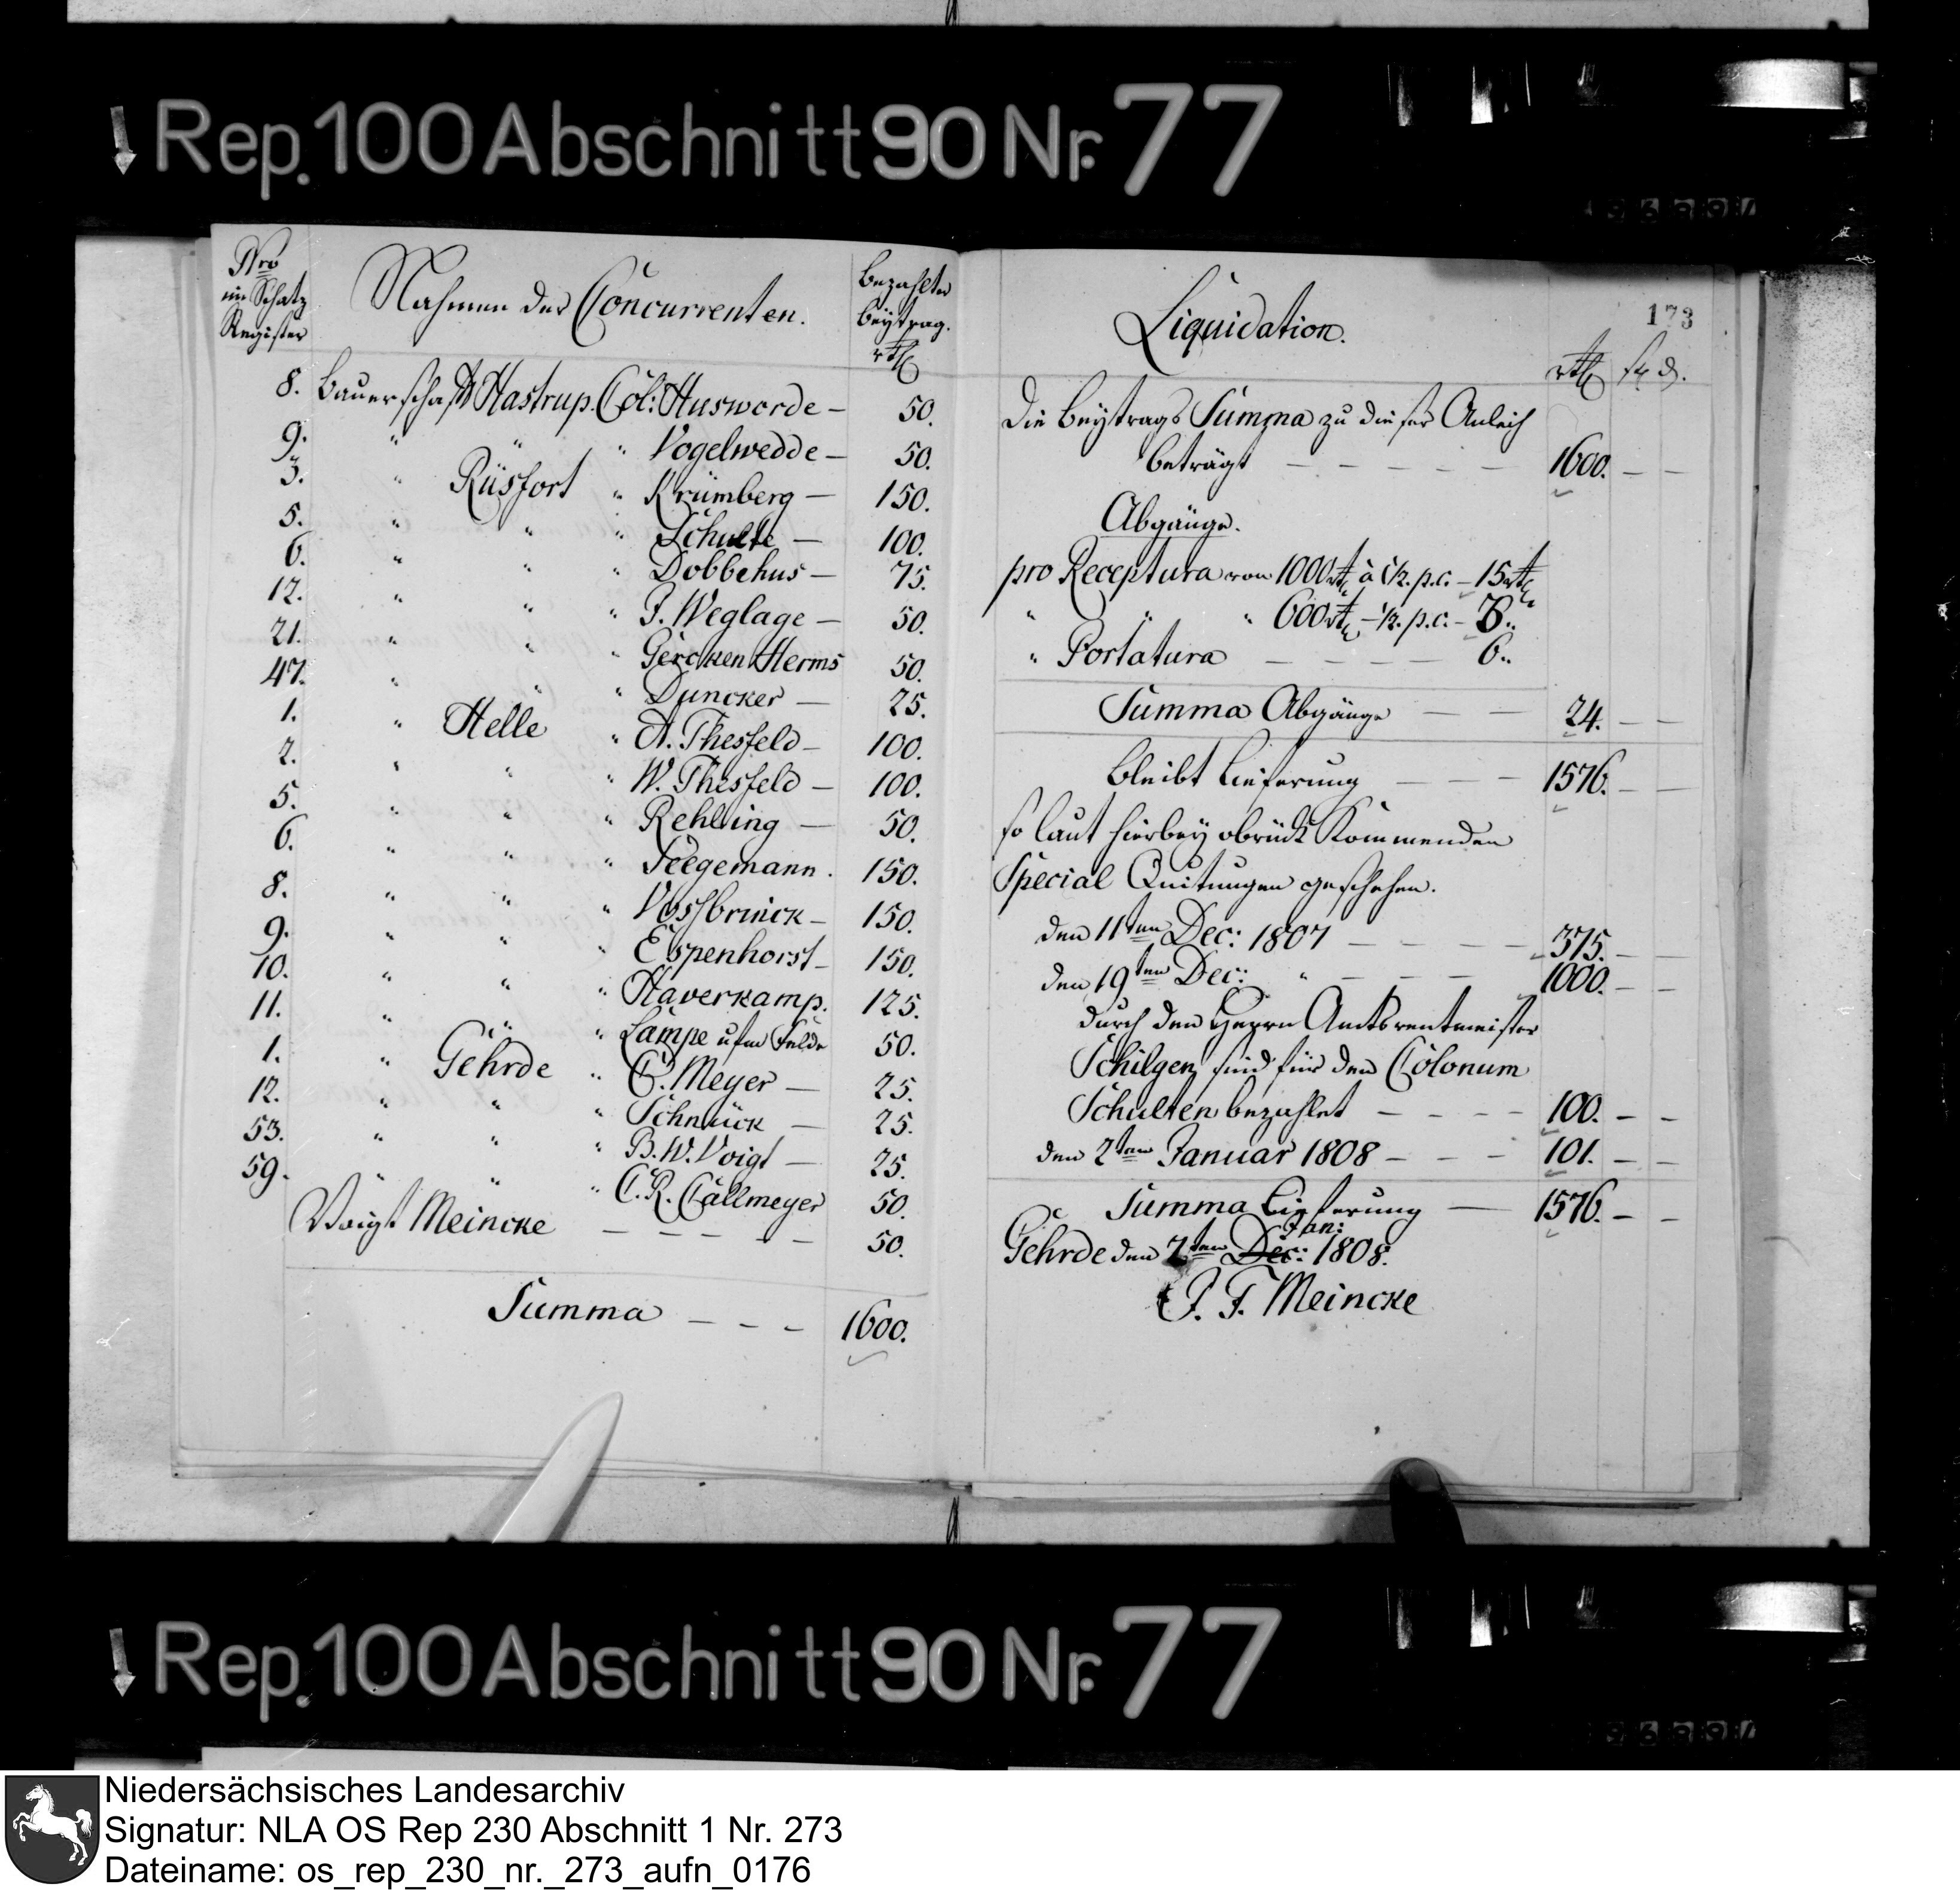 Rep. 100 Abschnitt 90 Nr. 77
Nro im Schatz Register
Nahmen der Concurrenten.
Bezahlter Beytrag. rthl
8. Bauerschaft Hastrup. Col: Husworde – 50.
9. " " " Vogelwedde – 50.
3. " Rüsfort " Krümberg – 150.
5. " " " Schulte – 100.
6. " " " Dobbehus – 75.
12. " " " J. Weglage – 50.
21. " " " Gercken Herms 50.
47. " " " Duncker – 25.
1. " Helle " A. Thesfeld – 100.
2. " " " W. Thesfeld – 100.
5. " " " Rehling – 50.
6. " " " Seegemann. 150.
8. " " " Vossbrinck – 150.
9. " " " Espenhorst – 150.
10. " " " Haverkamp. 125.
11. " " " Lampe ufm Felde 50.
1. " Gehrde " C. Meyer – 25.
12. " " " Schnück – 25.
53. " " " B. W. Voigt – 25.
59. " " " C. R. Callmeyer 50.
Voigt Meincke – – – – – 50.
Summa – – – 1600.
173
Liquidation.
rthl ß d.
Die Beytrags Summa zu dieser Anleih
beträgt – – – – – 1600. – –
Abgänge.
pro Receptura von 1000 rthl à 1½ p.c. – 15 rthl
" " " 600 rthl – ½ p.c. – 3 "
" Portatura – – – – 6 "
Summa Abgänge – – 24. – –
Bleibt Lieferung – – – 1576. – –
so laut hierbey zurück Kommenden
Special Quitungen geschehen.
den 11ten Dec: 1807 – – – – 375. – –
den 19ten Dec: " – – – 1000. – –
durch den Herrn Amtsrentmeister
Schilgen sind für den Colonum
Schulten bezahlet – – – – 100. – –
den 2ten Januar 1808 – – – 101. – –
Summa Lieferung – 1576. – –
Jan:
Gehrde den 7ten Dec: 1808.
J. F. Meincke
Rep. 100 Abschnitt 90 Nr. 77
Niedersächsisches Landesarchiv
Signatur: NLA OS Rep 230 Abschnitt 1 Nr. 273
Dateiname: os_rep_230_nr._273_aufn_0176